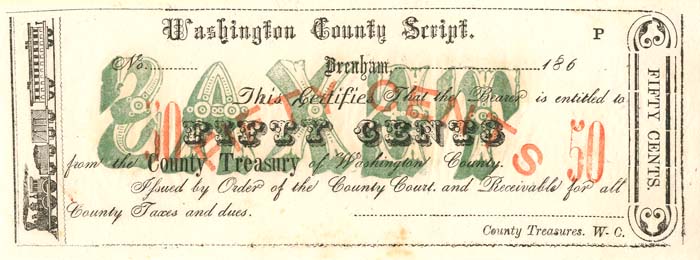 Washington County Script.
P
No. Brenham, 186
This Certifies That the Bearer is entitled to
50 FIFTY CENTS 50
FIFTY CENTS
from the County Treasury of Washington County.
Issued by Order of the County Court. and Receivable for all
County Taxes and dues.
County Treasures. W. C.
FIFTY CENTS